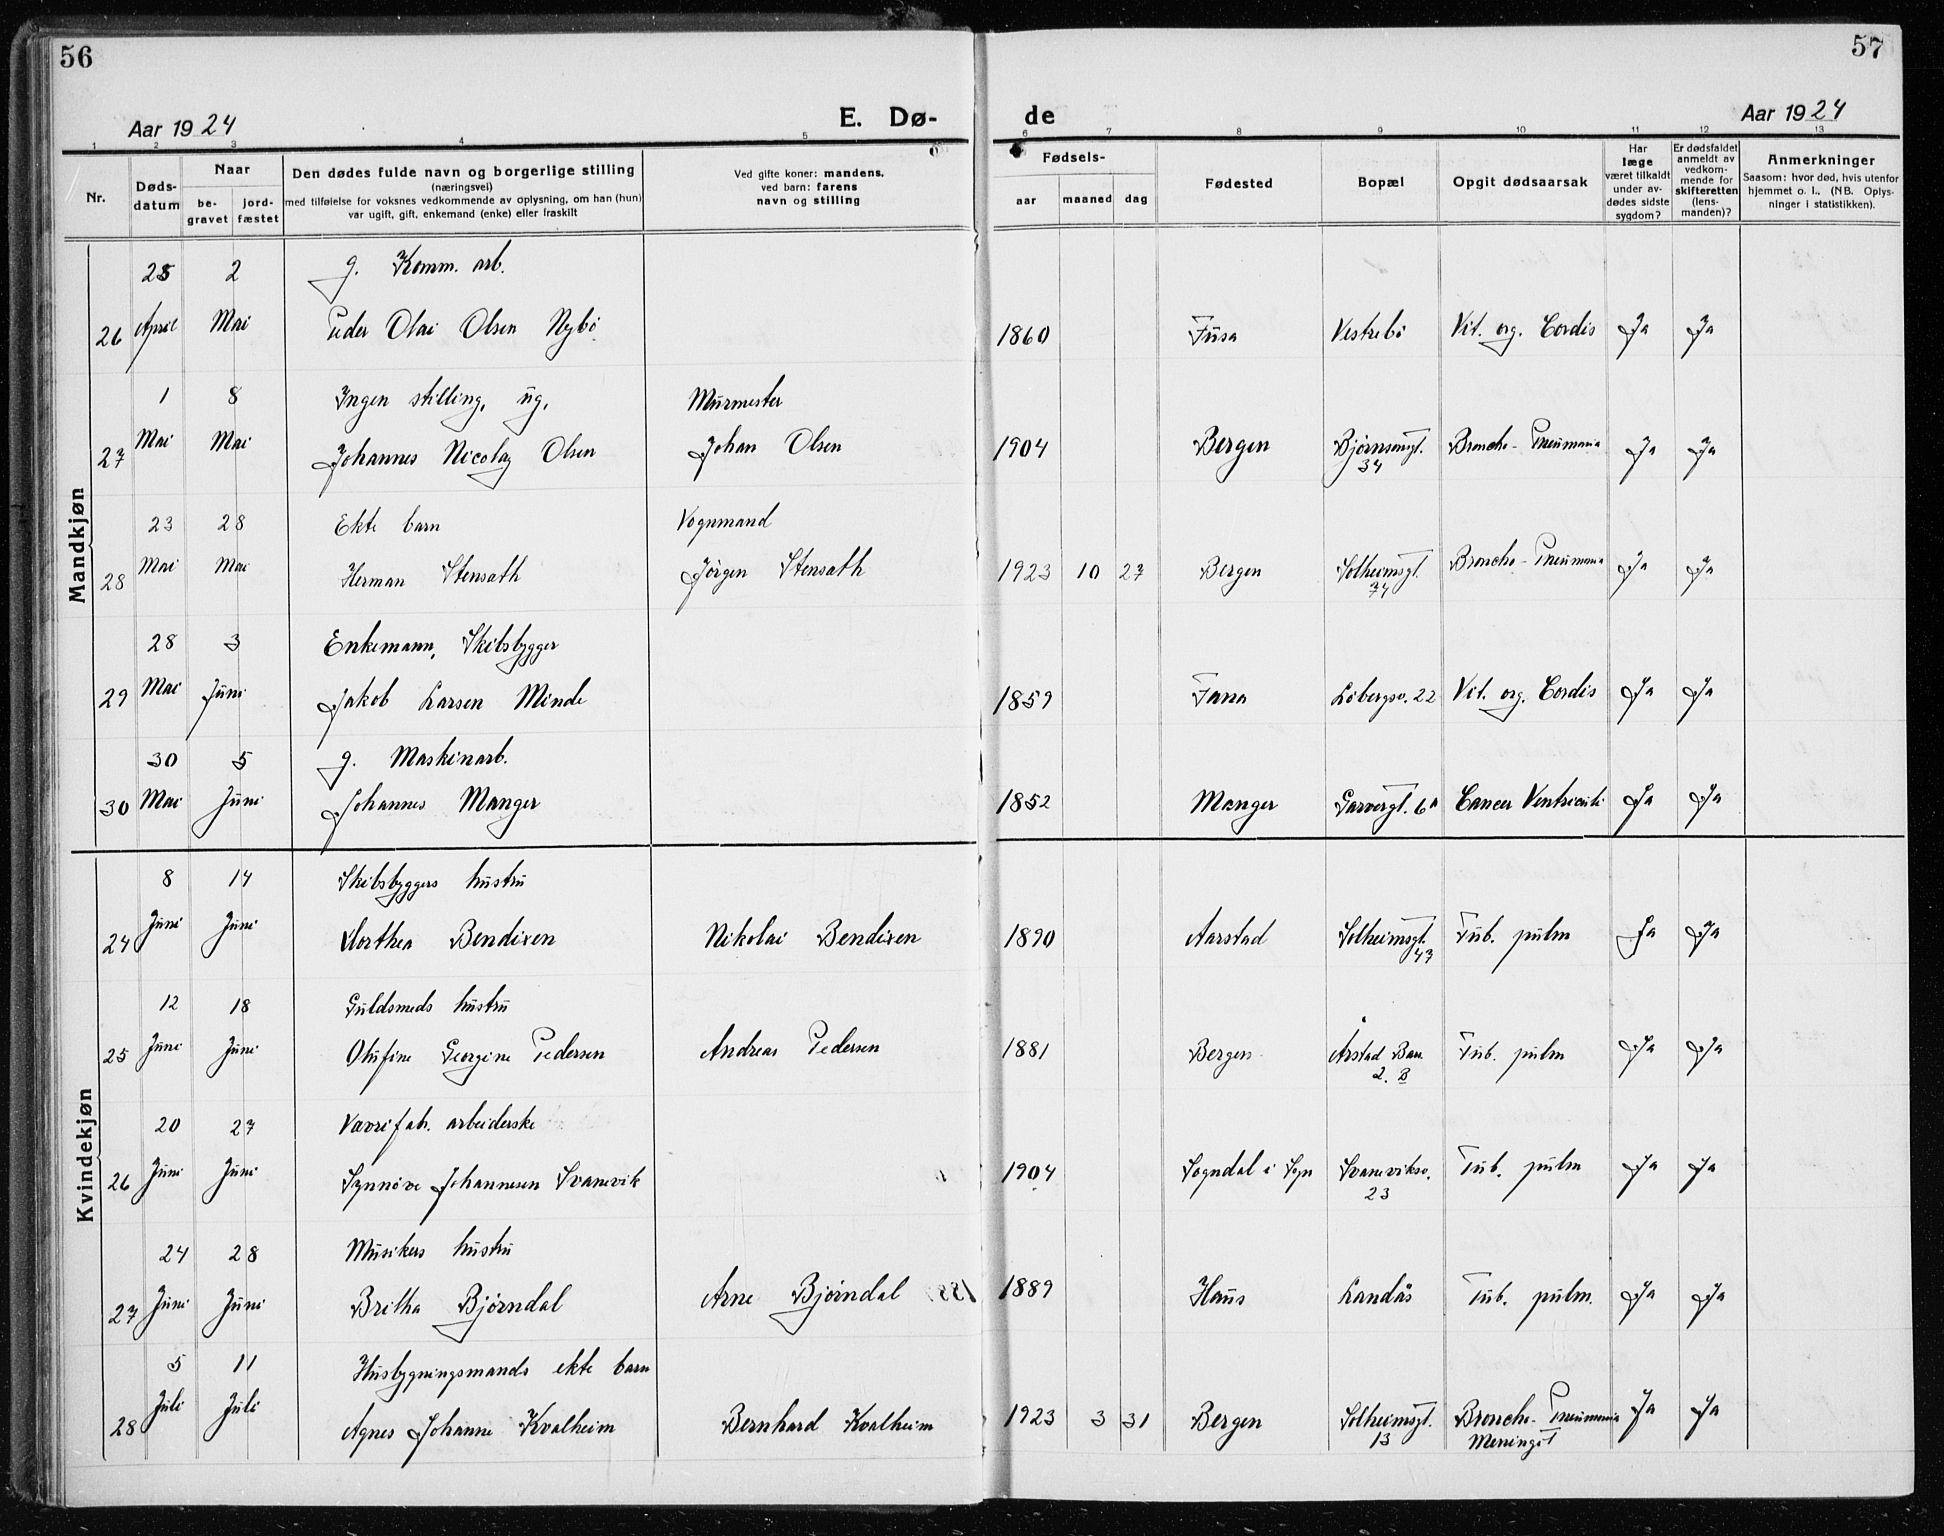 56
57
Aar 1924
E. Dø-
de
Aar 1924
1 2 3 4 5 6 7 8 9 10 11 12 13
Nr.
Døds-
datum
Naar
be-
gravet
jord-
fæstet
Den dødes fulde navn og borgerlige stilling
(næringsvei)
med tilføielse for voksnes vedkommende av oplysning, om han (hun)
var ugift, gift, enkemand (enke) eller fraskilt
Ved gifte koner: mandens,
ved barn: farens
navn og stilling
Fødsels-
aar maaned dag
Fødested
Bopæl
Opgit dødsaarsak
Har
læge
været tilkaldt
under av-
dødes sidste
sygdom?
Er dødsfaldet
anmeldt av
vedkom-
mende for
skifteretten
(lens-
manden)?
Anmerkninger
Saasom: hvor død, hvis utenfor
hjemmet o. l., (NB. Oplys-
ninger i statistikken).
Mandkjøn
25 2 g. Komm. arb.
26 April Mai Peder Olai Olsen Nybö 1860 Fusa Vestrebö Vit. org. Cordis Ja Ja
1 8 Ingen stilling, ug. Murmester
27 Mai Mai Johannes Nicolay Olsen Johan Olsen 1904 Bergen Bjørnsonsgt. Broncho-Pneumonia Ja Ja
34
23 28 Ekte barn Vognmand
28 Mai Mai Herman Stensath Jörgen Stensath 1923 10 27 Bergen Solheimsgt. Broncho-Pneumonia Ja Ja
74
28 3 Enkemann, Skibsbygger
29 Mai Juni Jakob Larsen Minde 1859 Fana Löbergsv. 22 Vit. org. Cordis Ja Ja
30 5 g. Maskinarb.
30 Mai Juni Johannes Manger 1852 Manger Garvergt. 6A Cancer Ventriculi Ja Ja
Kvindekjøn
8 14 Skibsbyggers hustru
24 Juni Juni Dorthea Bendixen Nikolai Bendixen 1890 Aarstad Solheimsgt. Tub. pulm Ja Ja
43
12 18 Guldsmeds hustru
25 Juni Juni Olufine Georgine Pedersen Andreas Pedersen 1881 Bergen Årstad Bar. Tub. pulm Ja Ja
2. B
20 27 Vævrifab. arbeiderske
26 Juni Juni Synnöve Johannesen Svanevik 1904 Sogndal i Sogn Svaneviksv. Tub. pulm Ja Ja
23
24 28 Musikers hustru
27 Juni Juni Britha Bjørndal Arne Bjørndal 1889 Haus Landås Tub. pulm. Ja Ja
5 11 Husbygningsmands ekte barn
28 Juli Juli Agnes Johanne Kvalheim Bernhard Kvalheim 1923 3 31 Bergen Solheimsgt. Broncho-Pneumonia Ja Ja
13 Meningit